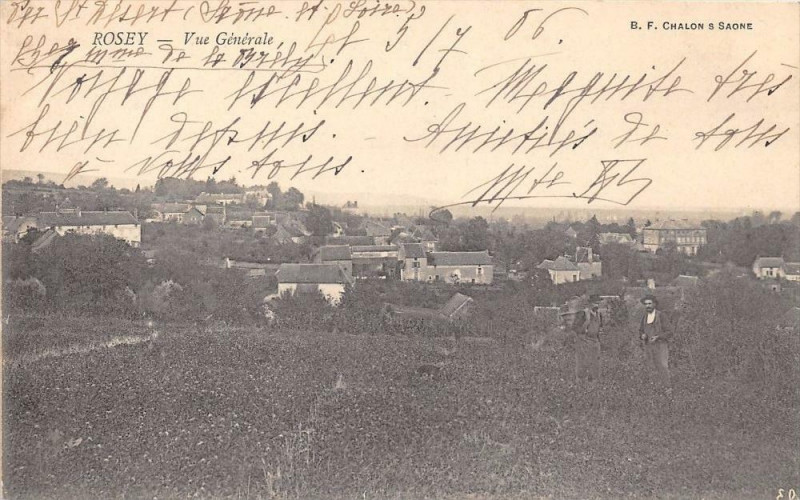 Par St Désert (Saône et Loire)
Chez Mme de la
le 5/7 06
ROSEY — Vue Générale
B. F. CHALON S SAONE
Voyage excellent. Marguite très
bien depuis. Amitiés de tous
à vous tous.
Mte